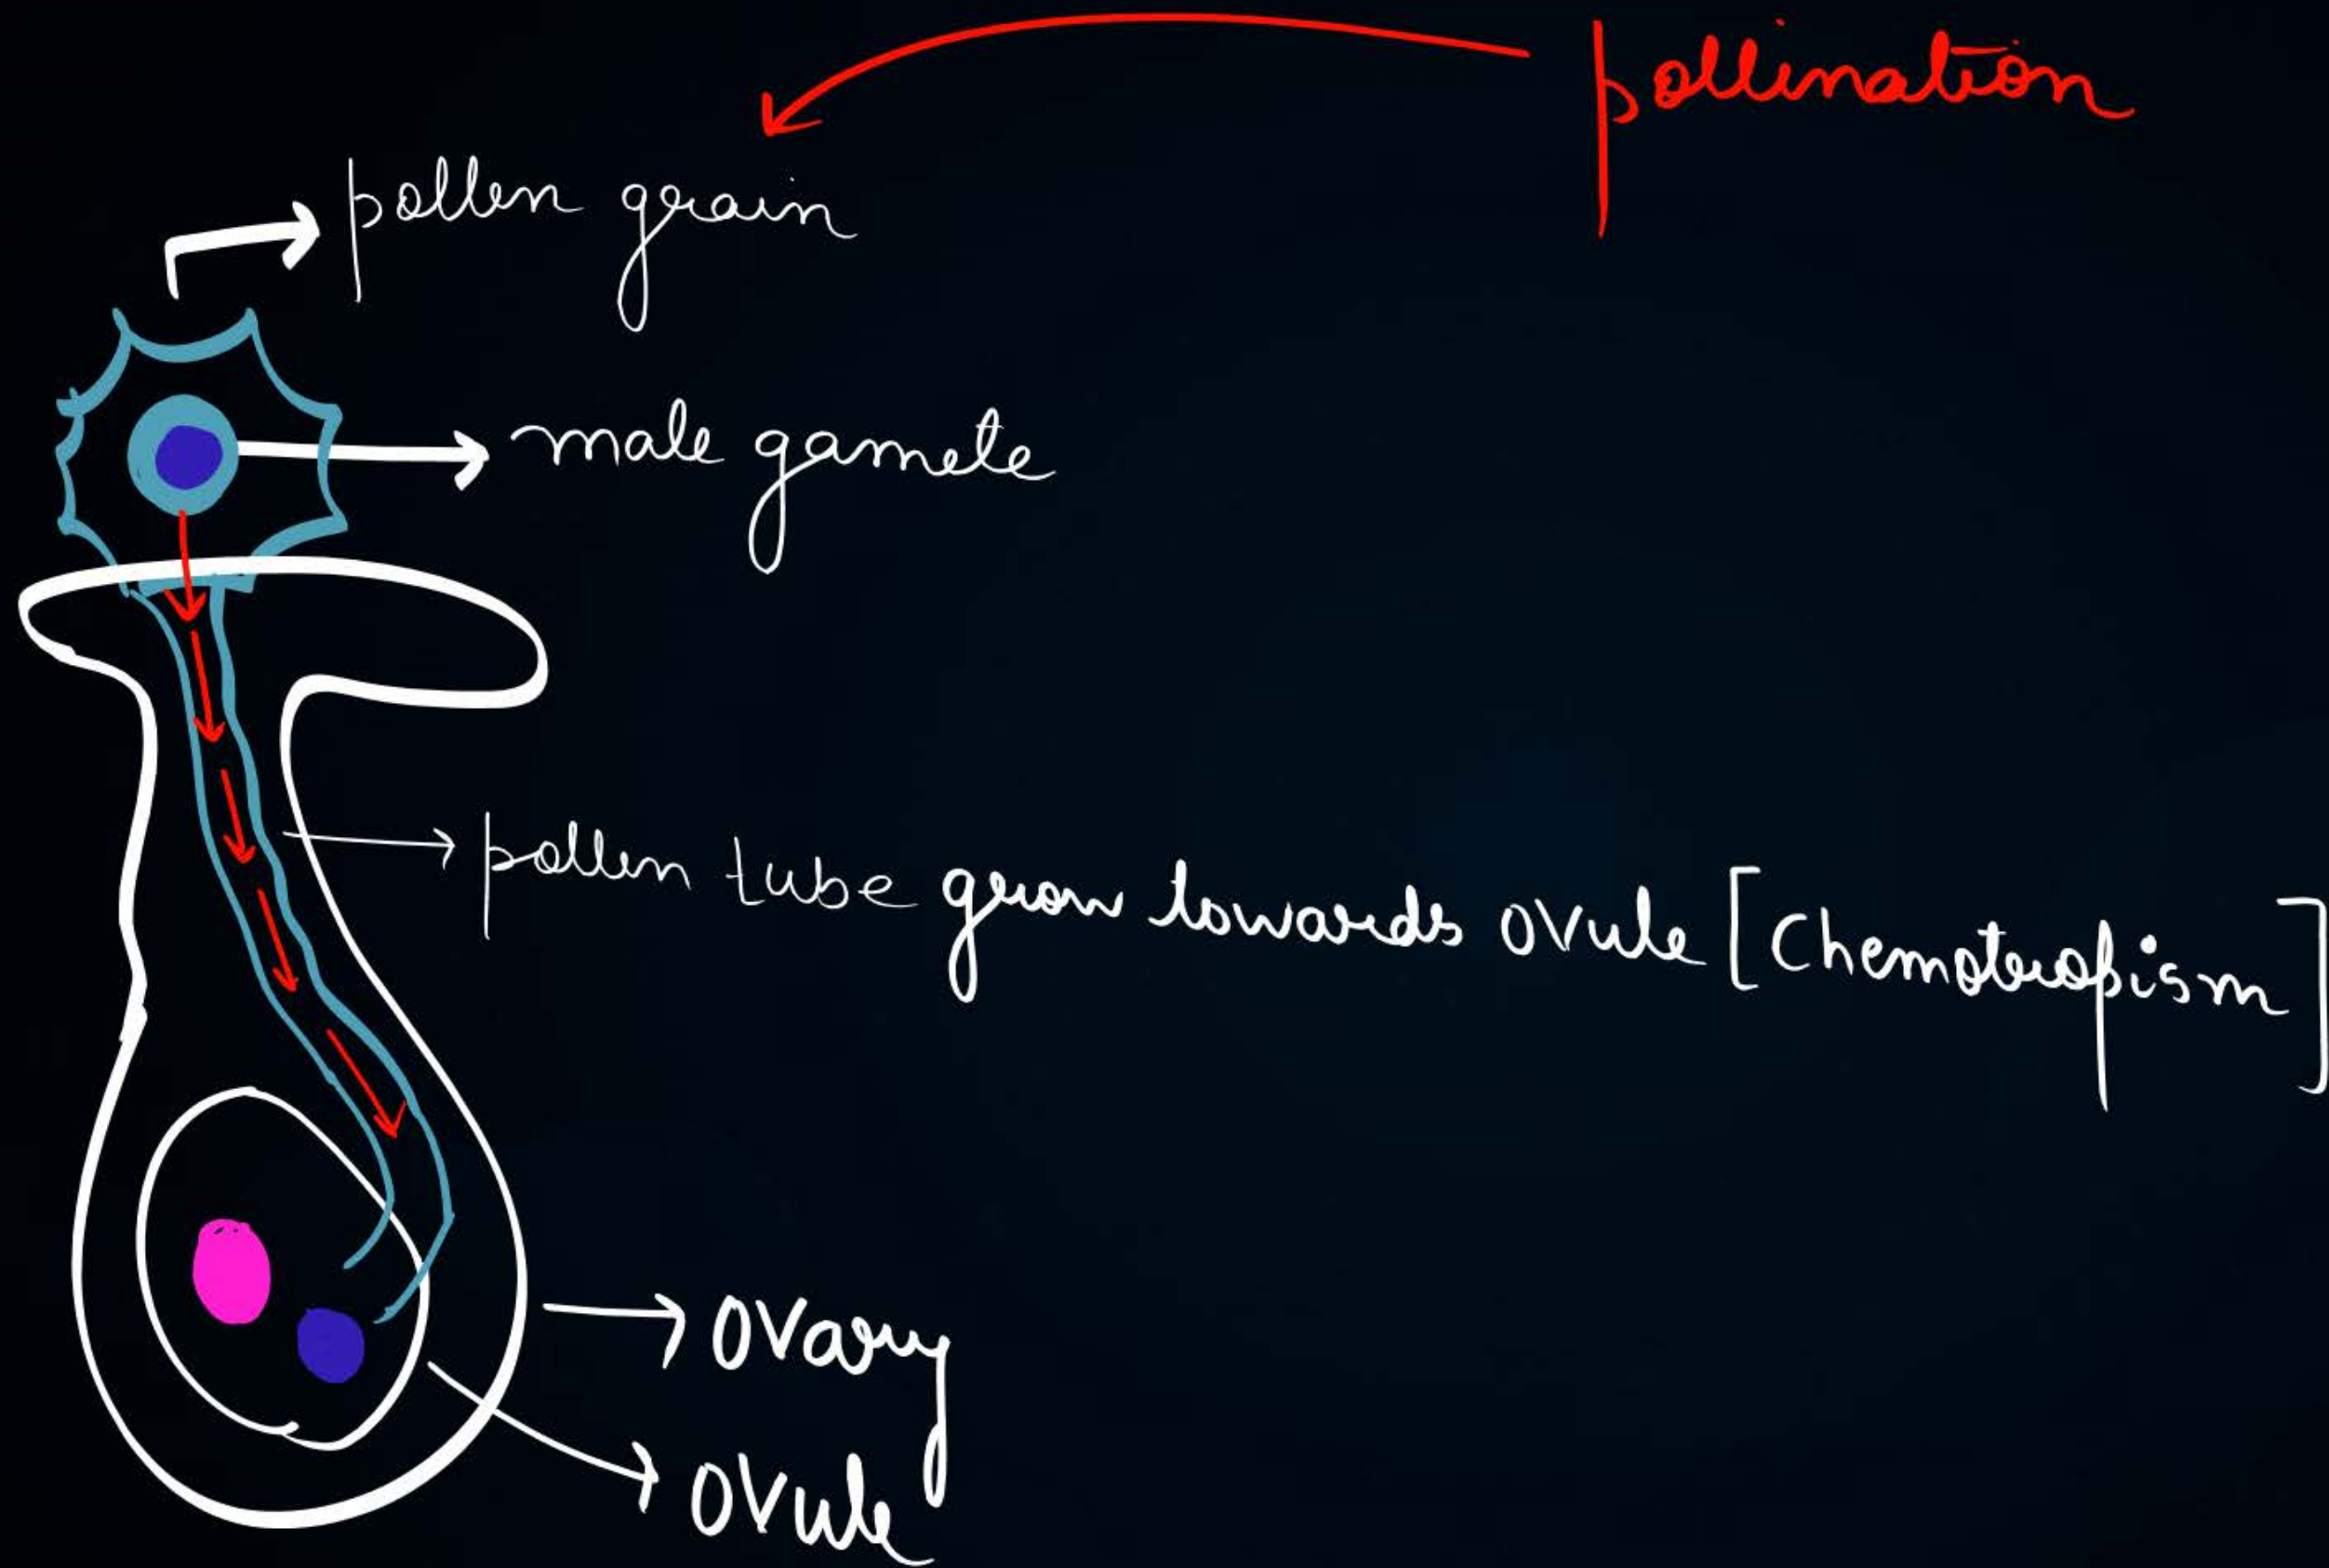 pollination
pollen grain
male gamete
pollen tube grow towards ovule [Chemotropism]
ovary
ovule